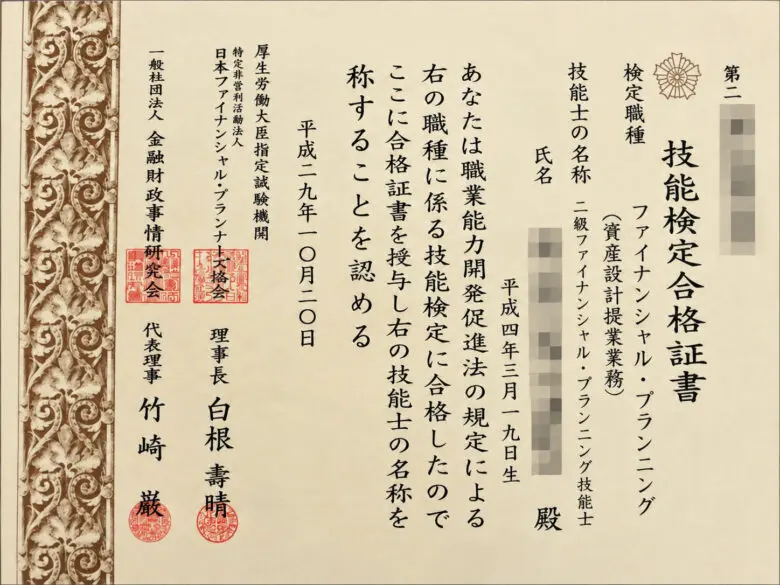 第二
技能検定合格証書
検定職種
ファイナンシャル・プランニング
(資産設計提案業務)
技能士の名称
二級ファイナンシャル・プランニング技能士
氏名
殿
平成四年三月一九日生
あなたは職業能力開発促進法の規定による
右の職種に係る技能検定に合格したので
ここに合格証書を授与し右の技能士の名称を
称することを認める
平成二九年一〇月二〇日
厚生労働大臣指定試験機関
特定非営利活動法人
日本ファイナンシャル・プランナーズ協会
理事長 白根 壽晴
一般社団法人 金融財政事情研究会
代表理事 竹崎 巌